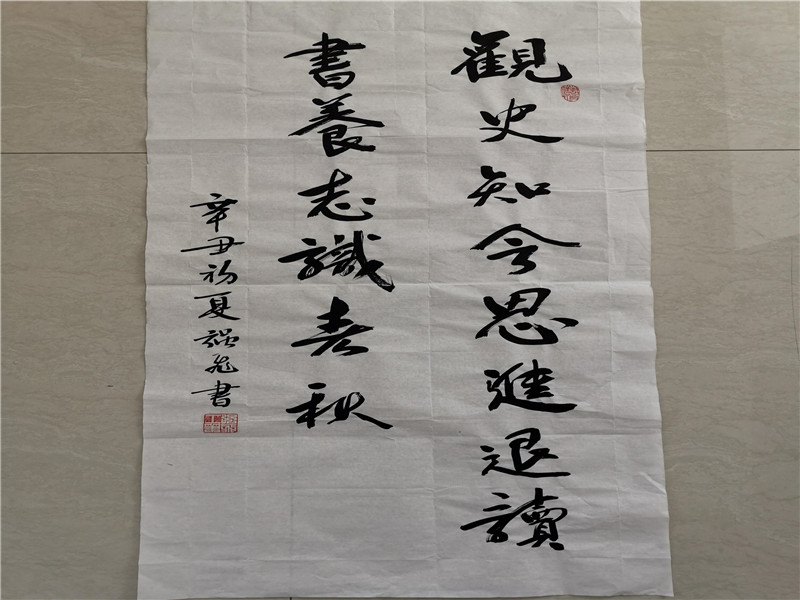 觀史知今思進退讀
書養志識春秋
辛丑初夏強飛書